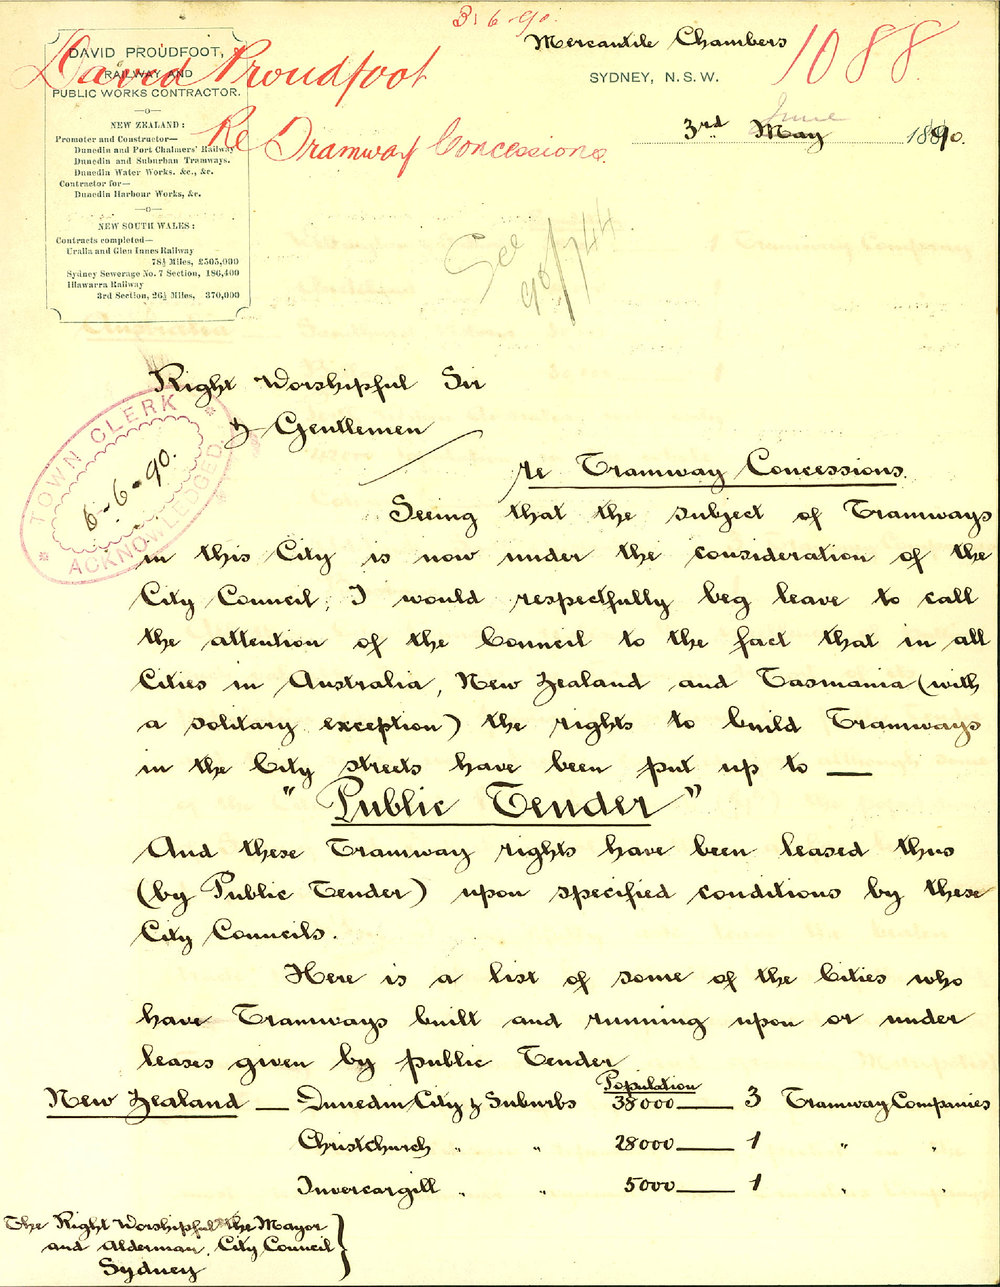 3.6.90.
Mercantile Chambers
1088
SYDNEY, N.S.W.
June
3rd May 1890.
DAVID PROUDFOOT,
RAILWAY AND
PUBLIC WORKS CONTRACTOR.
NEW ZEALAND:
Promoter and Constructor—
Dunedin and Port Chalmers' Railway
Dunedin and Suburban Tramways.
Dunedin Water Works. &c., &c.
Contractor for—
Dunedin Harbour Works, &c.
NEW SOUTH WALES:
Contracts completed—
Uralla and Glen Innes Railway
78½ Miles, £505,000
Sydney Sewerage No. 7 Section, 186,400
Illawarra Railway
3rd Section, 26½ Miles, 370,000
David Proudfoot
Re Tramway Concessions
See 90/744
Right Worshipful Sir
& Gentlemen
TOWN CLERK
6-6-90.
ACKNOWLEDGED.
re Tramway Concessions.
Seeing that the subject of Tramways
in this City is now under the consideration of the
City Council, I would respectfully beg leave to call
the attention of the Council to the fact that in all
Cities in Australia, New Zealand and Tasmania (with
a solitary exception) the rights to build Tramways
in the City streets have been put up to —
"Public Tender"
And these Tramway rights have been leased thus
(by Public Tender) upon specified conditions by these
City Councils.
Here is a list of some of the Cities who
have Tramways built and running upon or under
leases given by public Tender
Population
New Zealand — Dunedin City & Suburbs 38000 — 3 Tramway Companies
Christchurch " " 28000 — 1 " "
Invercargill " " 5000 — 1 " "
The Right Worshipful the Mayor
and Alderman, City Council
Sydney